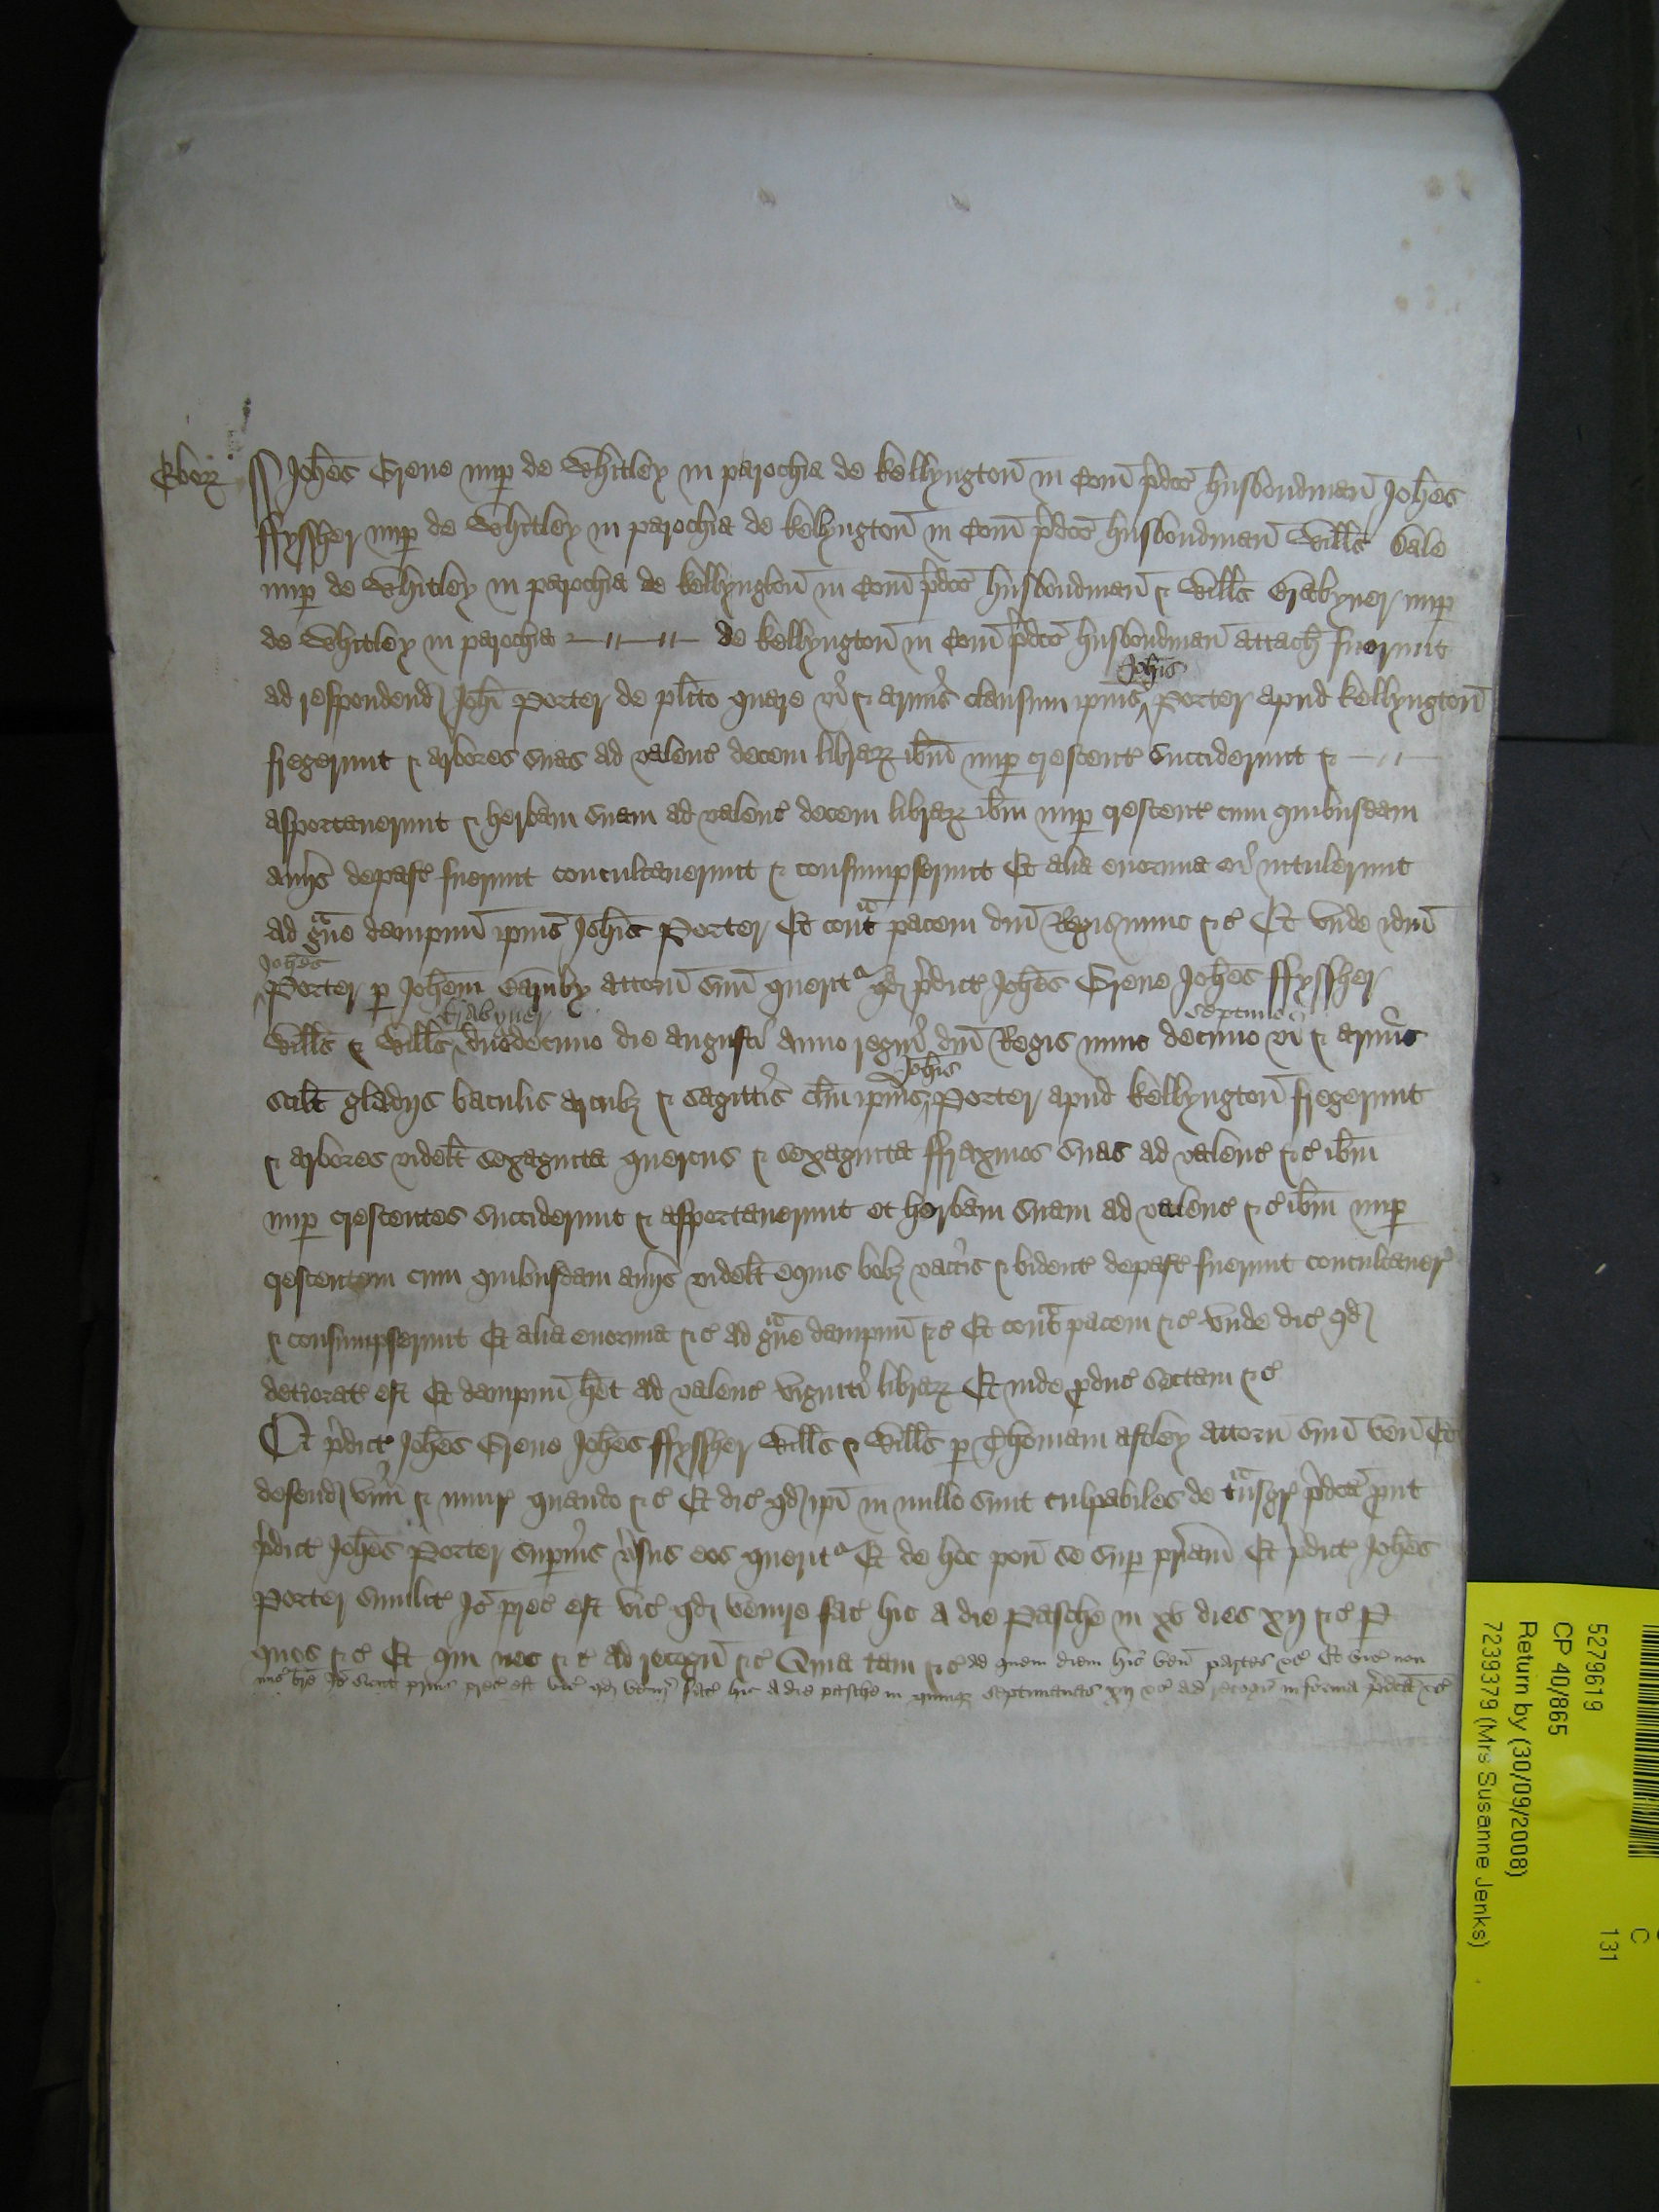 Ebor̄
Joh̄es Grene nup̱ de Whitley in parochia de Kellyngton̄ in Com̄ p̄dc̄o husbondman̄ Joh̄es
ffyssher nup̱ de Whitley in parochia de Kellyngton̄ in Com̄ p̄dc̄o husbondman̄ Will̄s Sale
nup̱ de Whitley in parochia de Kellyngton̄ in Com̄ p̄dc̄o husbondman̄ & Will̄s Grabyner nup̱
de Whitley in parochia de Kellyngton̄ in Com̄ p̄dc̄o husbondman̄ attach̄ fuerunt
Joh̄is
ad respondend̄ Joh̄i Porter de pl̄ito quare vi & armis clausum ip̄ius Porter apud Kellyngton̄
fregerunt & arbores suas ad valenc̄ decem librar̄ ib̄m nup̱ crescent̄ succiderunt &
asportauerunt & herbam suam ad valenc̄ decem librar̄ ib̄m nup̱ crescent̄ cum quibusdam
aūijs depast̄ fuerunt conculcauerunt & consumpserunt Et alia enormia ei intulerunt
ad gͣue dampnū ip̄ius Joh̄is Porter Et contͣ pacem dn̄i Regis nunc &c̄ Et vnde idm̄
Joh̄es
Porter p̱ Joh̄em Barnby attorn̄ suū querit̄ qd̄ p̄dict̄ Joh̄es Grene Joh̄es ffyssher
Grabyner septimo
Will̄s & Will̄s duodecimo die augusti anno regni dn̄i Regis nunc decimo vi & armis
Joh̄is
scil̄t gladijs baculis arcubȝ & sagittis cl̄m ip̄ius Porter apud Kellyngton̄ fregerunt
& arbores videl̄t sexaginta quercus & sexaginta ffraxinos suas ad valenc̄ &c̄ ib̄m
nup̱ crescentes succiderunt & asportauerunt et herbam suam ad valenc̄ &c̄ ib̄m nup̱
crescentem cum quibusdam aūijs videl̄t equis bobȝ vaccis & bident̄ depast̄ fuerunt conculcauer̄
& consumpserunt Et alia enormia &c̄ ad gͣue dampnū &c̄ Et contͣ pacem &c̄ vnde dic̄ qd̄
detiorat̄ est Et dampnū h̄et ad valenc̄ viginti librar̄ Et inde ꝓduc̄ sectam &c̄
Et p̄dict̄ Joh̄es Grene Joh̄es ffyssher Will̄s & Will̄s p̱ Thomam astley attorn̄ suū ven̄ Et
defend̄ vim & iniur̄ quando &c̄ Et dic̄ qd̄ ip̄i in nullo sunt culpabiles de tͣnsgr̄ p̄dc̄a ꝓut
p̄dict̄ Joh̄es Porter sup̱ius v̄sus eos querit̄ Et de hoc pon̄ se sup̱ pr̄iam Et p̄dict̄ Joh̄es
Porter similit̄ Jō prec̄ est vic̄ qd̄ venire fac̄ hic a die Pasche in xv dies xij &c̄ P
quos &c̄ Et qui nec &c̄ ad recogn̄ &c̄ Quia tam &c̄ ad quem diem hic ven̄ partes &c̄ Et vic̄ non
mis̄ br̄e Jō sicut prius prec̄ est vic̄ qd̄ venir̄ fac̄ hic a die pasche in quinqȝ septimanas xij &c̄ ad recogn̄ in forma p̄dc̄a &c̄
5279619
CP 40/865
Return by (30/09/2008)
7239379 (Mrs Susanne Jenks)
C
131